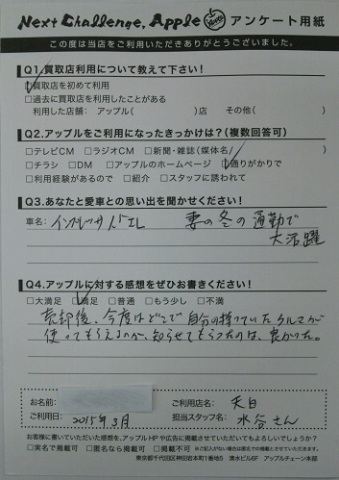 Next Challenge, Apple アンケート用紙
この度は当店をご利用いただきありがとうございました。
Q1.買取店利用について教えて下さい!
□買取店を初めて利用
□過去に買取店を利用したことがある
利用した店舗: アップル( )店 その他( )
Q2.アップルをご利用になったきっかけは?(複数回答可)
□テレビCM □ラジオCM □新聞・雑誌(媒体名/ )
□チラシ □DM □アップルのホームページ □通りがかりで
□利用経験があるので □紹介 □スタッフに誘われて
Q3.あなたと愛車との思い出を聞かせください!
車名: インプレッサ 妻の冬の通勤で
大活躍
Q4.アップルに対する感想をぜひお書きください!
□大満足 □満足 □普通 □もう少し □不満
売却後、今度はどこで自分の持っていたクルマが
使ってもらえるのか、知らせてもらったのは、良かった。
お名前:
ご利用店名: 天白
ご利用日: 2015年3月
担当スタッフ名: 水谷さん
お客様に書いていただいた感想を、アップルHPや広告に掲載させていただいてもよろしいでしょうか?
□実名で掲載可 □匿名なら掲載可 □掲載不可
東京都千代田区神田岩本町1番地5 清水ビル6F アップルチェーン本部